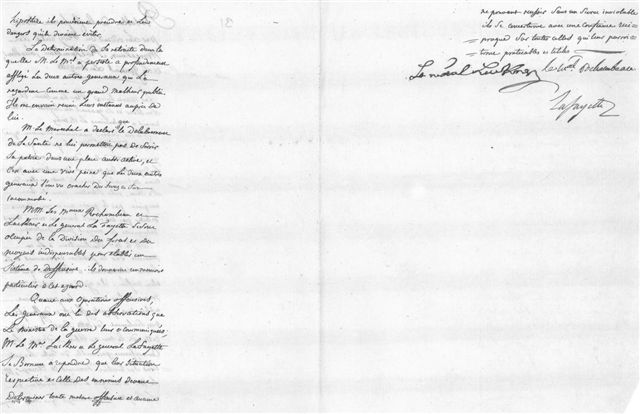 hipothèse ils pourraient prendre et les
dangers qu'ils doivent éviter.
La détermination de la retraite dans la
quelle M. le Mal a persisté a profondement
affligé les deux autres generaux qui la
regardent comme un grand malheur public.
Ils ne peuvent reunir leurs instances auprès de
lui.
M. le Marechal a declaré que le delabrement
de sa Santé ne lui permettoit pas de servir
sa patrie dans une place aussi active, et
c'est avec une vive peine que les deux autres
generaux l'ont vu
M.M. les Maux Rochambeau et
Luckner et le general La Fayette se sont
occupés de la division des forces et des
moyens indispensables pour etablir un
Sistème de Deffensive. ils donneront un mémoire
particulier à cet egard.
Quant aux Operations offensives,
Les generaux ont lu des observations que
Le Ministre de la guerre leur a communiquées,
M. le Mal Luckner et le general La Fayette
Se Bornent a repondre que leur Situation
respective et celle des ennemis devant
determiner toute mesure offensive et
ne pouvant
ils se concerteront avec une confiance réci
proque Sur toutes celles qui leur paroi
tront praticables et utiles
Le mal Luckner Le Mal. Rochambeau
Lafayette